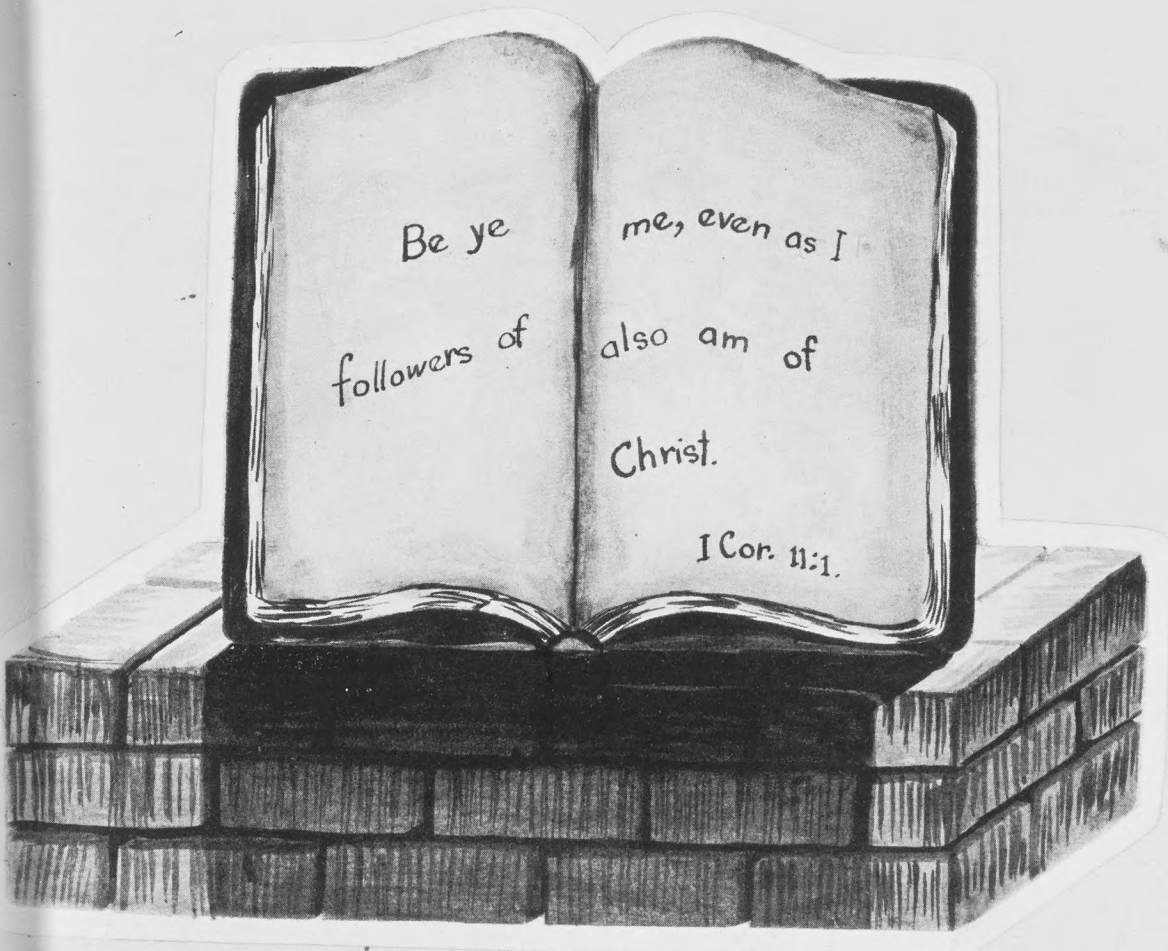 Be ye
followers of
me, even as I
also am of
Christ.
I Cor. 11:1.